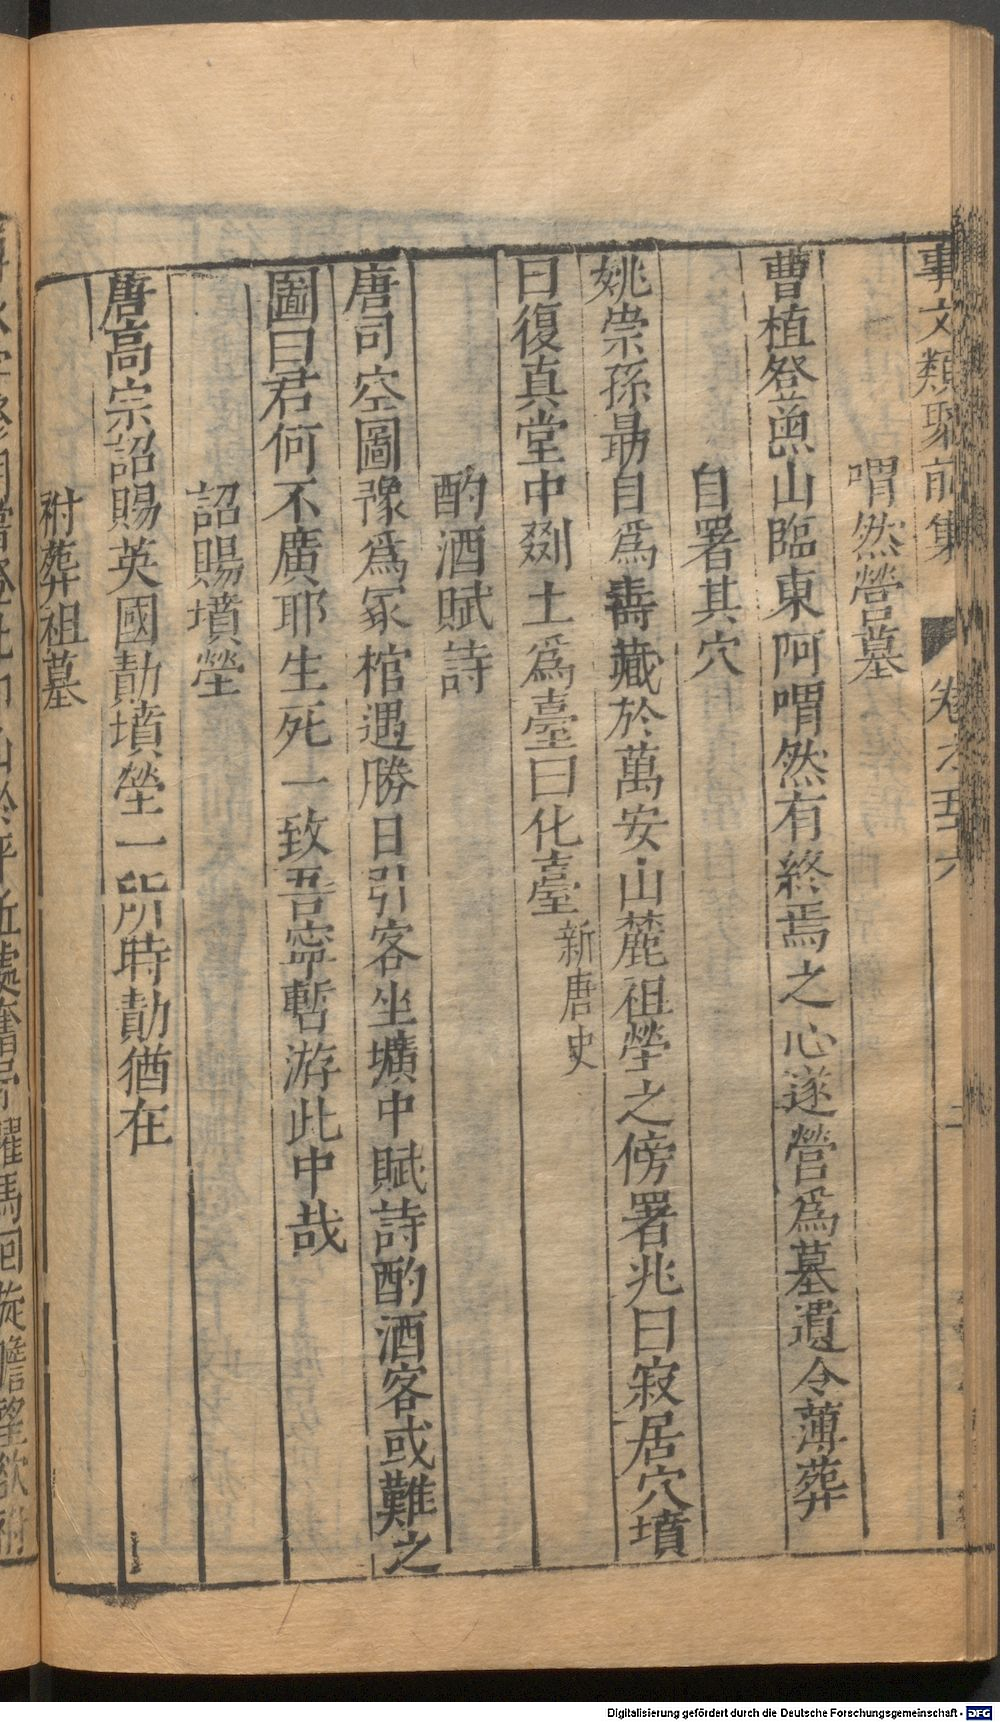 事文類聚前集 卷之五十六 二
喟然營墓
曹植登魚山臨東阿喟然有終焉之心遂營爲墓遺令薄葬
自署其穴
姚崇孫勗自爲壽藏於萬安山麓祖塋之傍署兆曰寂居穴墳
曰復真堂中剟土爲臺曰化臺新唐史
酌酒賦詩
唐司空圖豫爲冢棺遇勝日引客坐壙中賦詩酌酒客或難之
圖曰君何不廣耶生死一致吾寧暫游此中哉
詔賜墳塋
唐高宗詔賜英國勣墳塋一所時勣猶在
祔葬祖墓
Digitalisierung gefördert durch die Deutsche Forschungsgemeinschaft - DFG